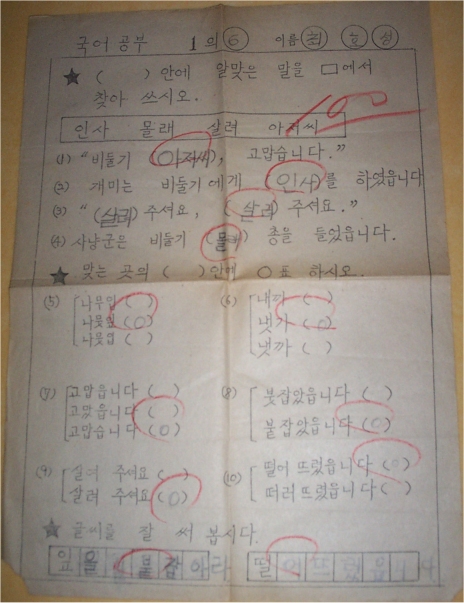 국어 공부 1의 6 이름 최 호 성
★ ( ) 안에 알맞은 말을 □에서
찾아 쓰시오.
100
인사 몰래 살려 아저씨
(1) "비둘기 (아저씨), 고맙습니다."
(2) 개미는 비둘기에게 (인사)를 하였읍니다
(3) "(살려) 주셔요, (살려) 주셔요."
(4) 사냥군은 비둘기 (몰래) 총을 들었읍니다.
★ 맞는 곳의 ( )안에 ○표 하시오.
(5) 나무잎 ( )
나뭇잎 (○)
나뭇입 ( )
(6) 내까 ( )
냇가 (○)
냇까 ( )
(7) 고맙읍니다 ( )
고맜읍니다 ( )
고맙습니다 (○)
(8) 붓잡았읍니다 ( )
붙잡았읍니다 (○)
(9) 실여 주셔요 ( )
살려 주셔요 (○)
(10) 떨어 뜨렸읍니다 (○)
떠러 뜨렸읍니다 ( )
★ 글씨를 잘 써 봅시다.
붙잡아라 떨어뜨렸읍니다